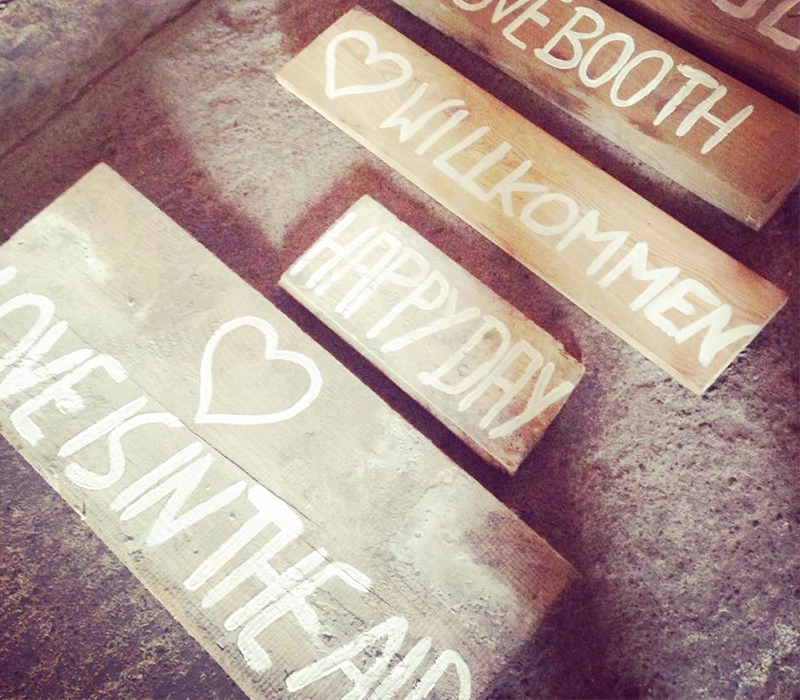 LOVEBOOTH
♡ WILLKOMMEN
HAPPY DAY
LOVE IS IN THE AIR